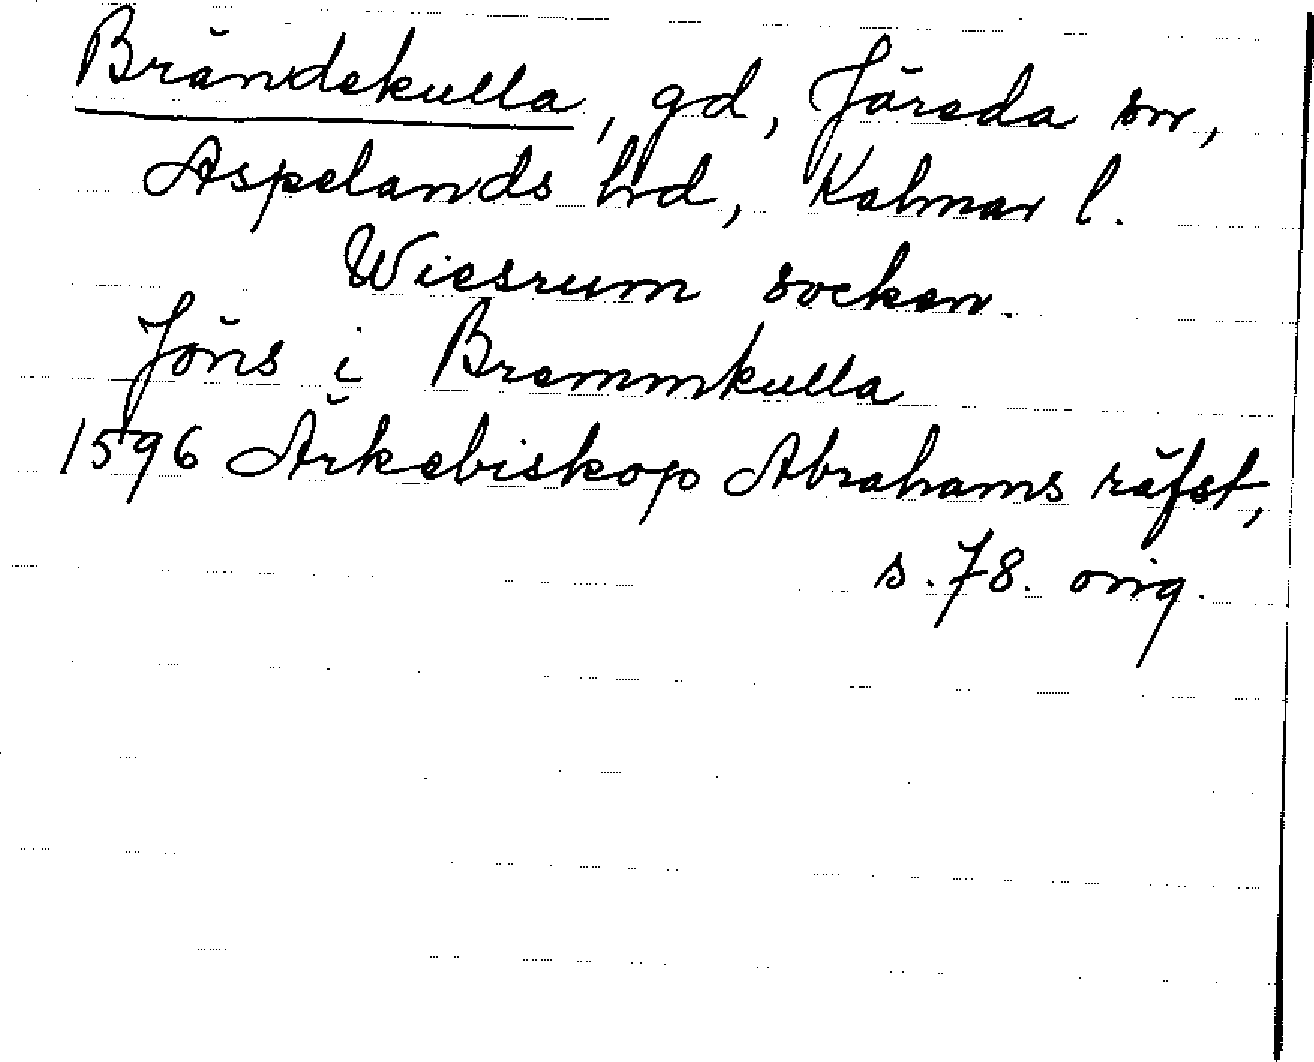 Brändekulla, gd, Järeda sn,
Aspelands hrd, Kalmar l.
Wiesrum socken.
Jöns i Bremmkulla
1596 Ärkebiskop Abrahams räfst,
s. 78. orig.